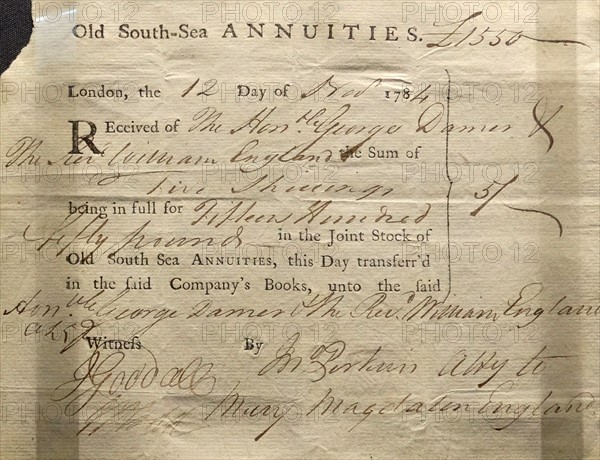 Old South-Sea ANNUITIES. £1550
London, the 12 Day of Nov 1784
REceived of The Honble George Damer &
The Revd William England the Sum of
Five Shillings 5/
being in full for Fifteen Hundred
Fifty pounds in the Joint Stock of
Old South Sea ANNUITIES, this Day transferr'd
in the said Company's Books, unto the said
Honble George Damer & the Revd William England
Witness By Jno Perkins Atty to
J Goddall Mary Magdalen England